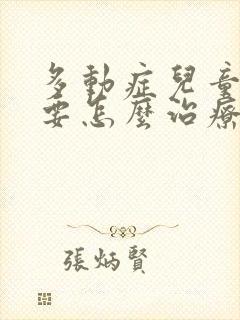 多動症兒童
要怎麼治療
張炳賢